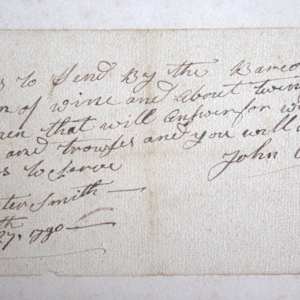 s to Send By the Barec
n of wine and about twen
nen that will answer for w
and trowses and you will
s to Serve
John
ter Smith
th
27, 1790